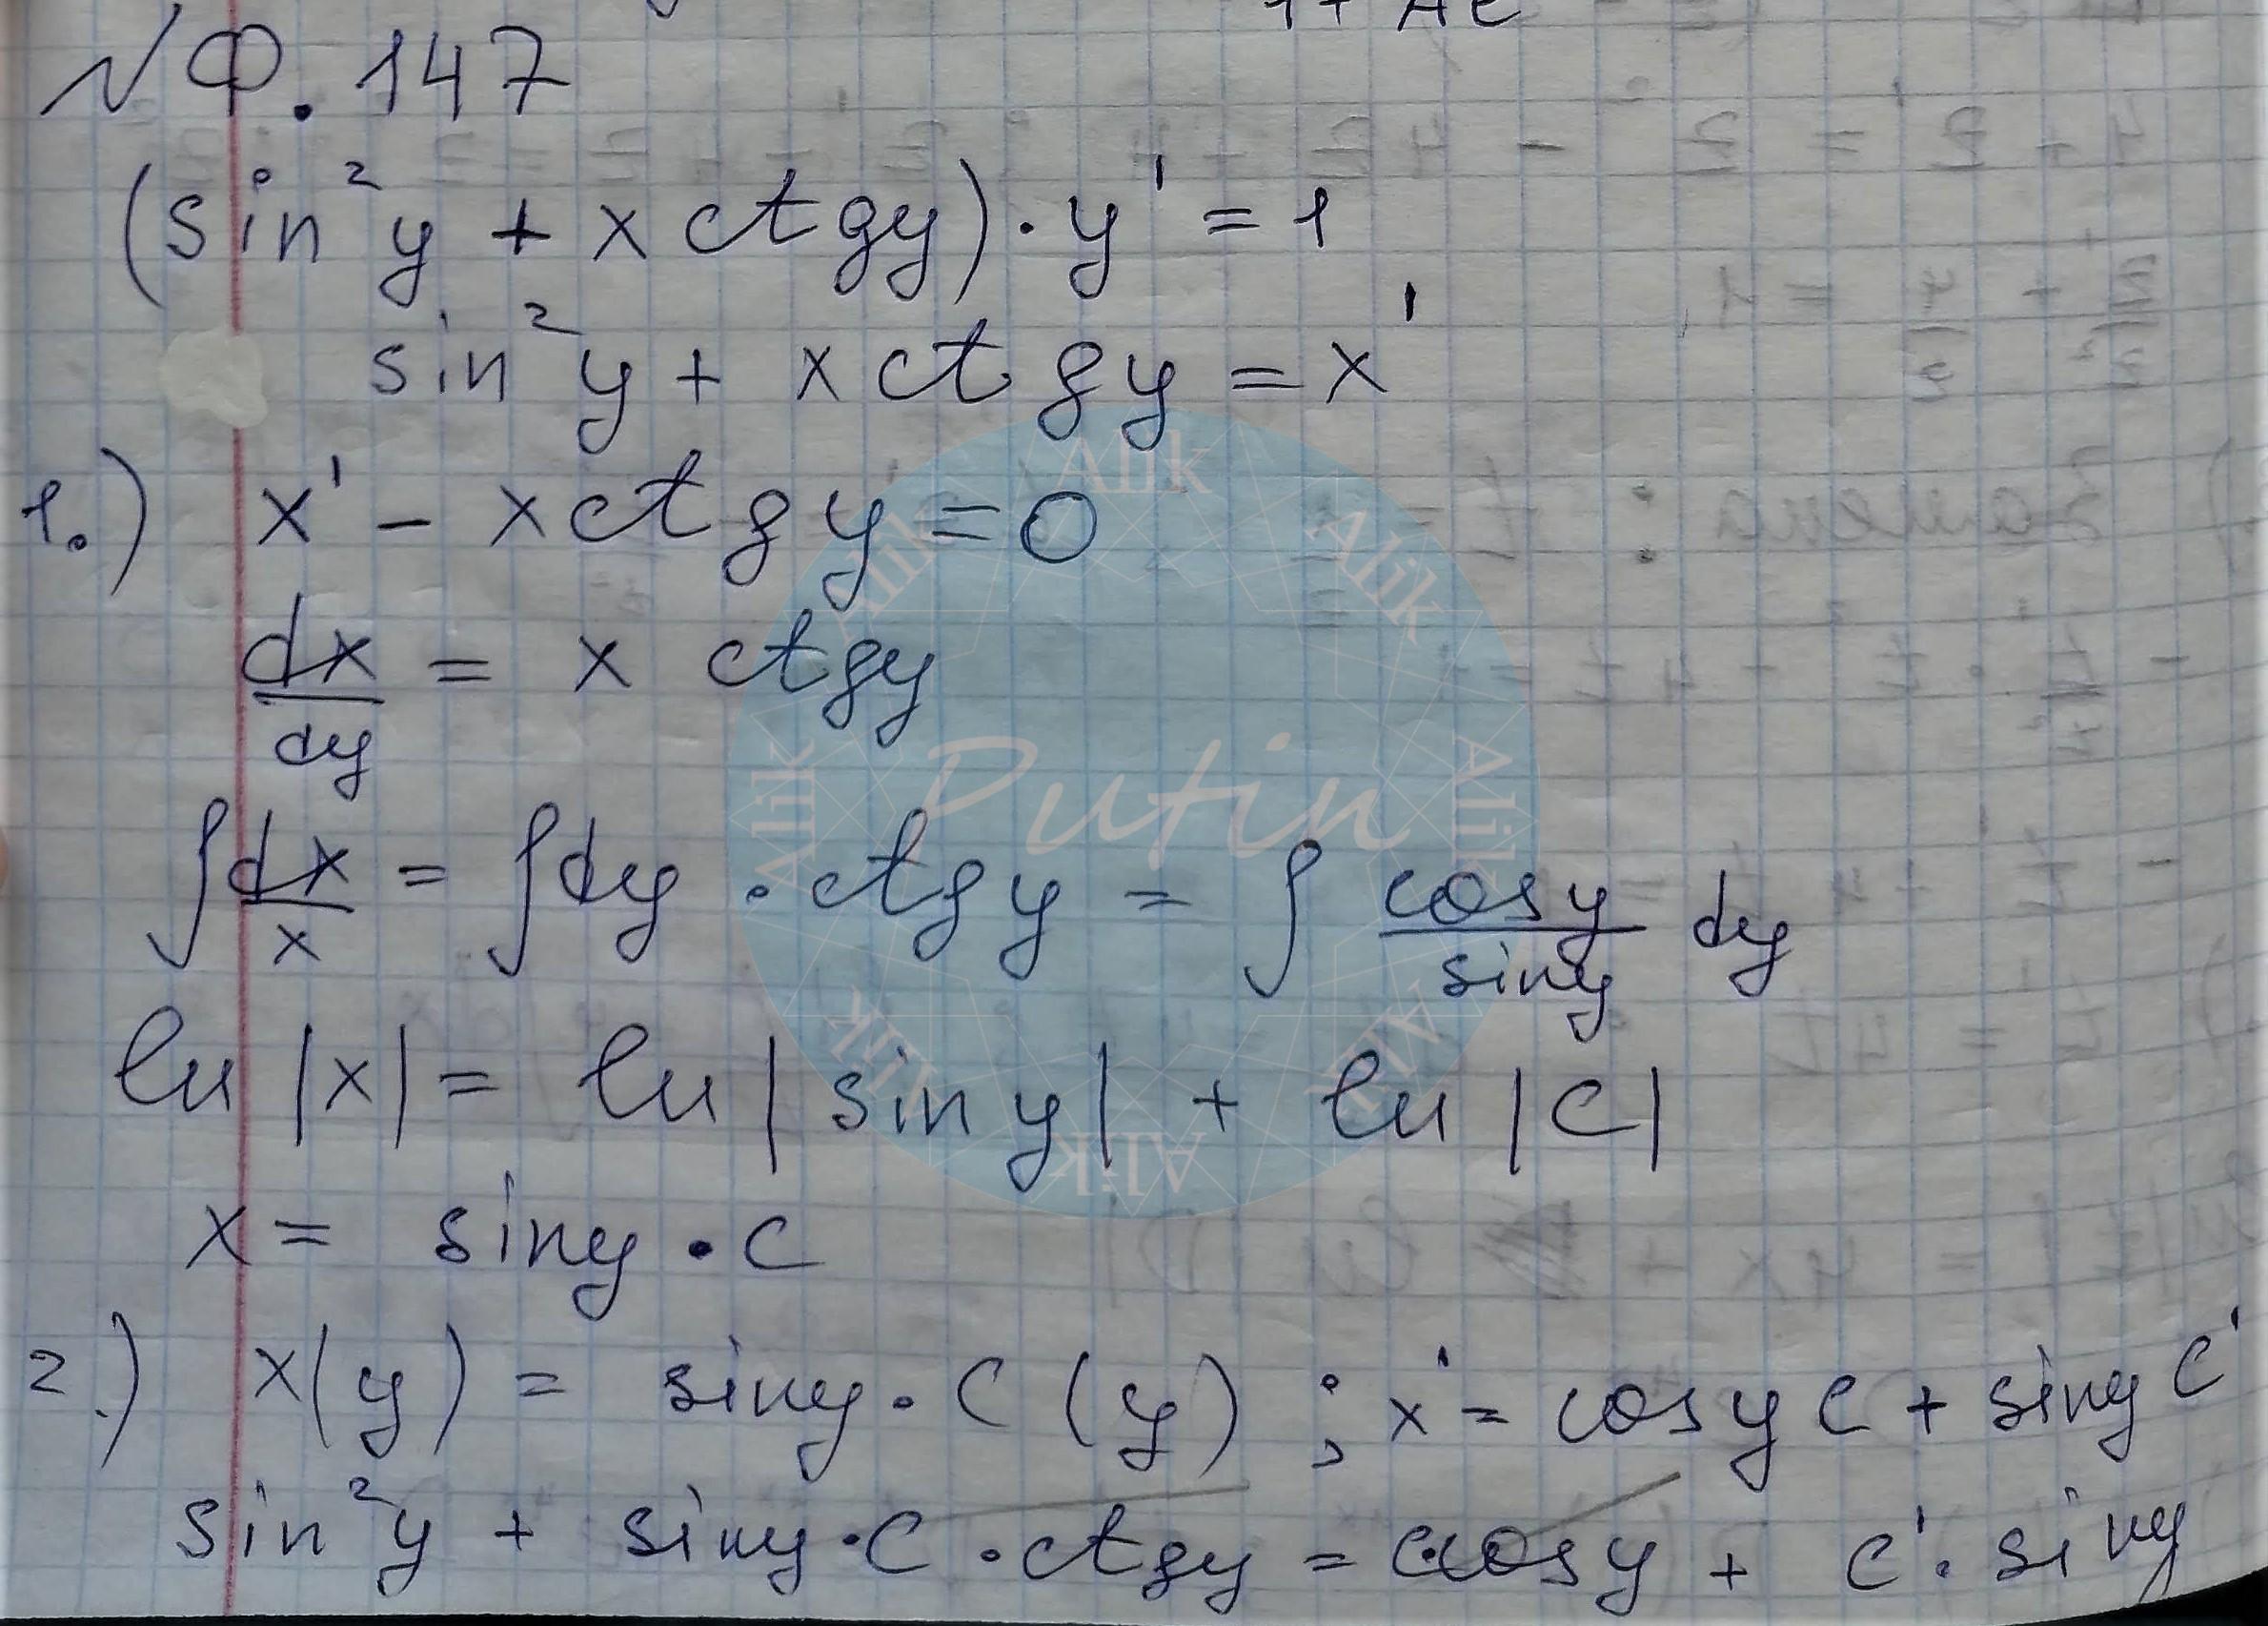 1 + Ae
№ Ф. 147
(sin²y + x ctgy) · y' = 1
sin²y + x ctgy = x'
1.) x' - x ctgy = 0
dx/dy = x ctgy
∫ dx/x = ∫ dy · ctgy = ∫ cosy/siny dy
ln |x| = ln |siny| + ln |C|
x = siny · C
2.) x(y) = siny · C(y) ; x' = cosy C + siny C'
sin²y + siny · C · ctgy = C·cosy + C' · siny
Putin
Alik Alik Alik Alik Alik Alik Alik Alik